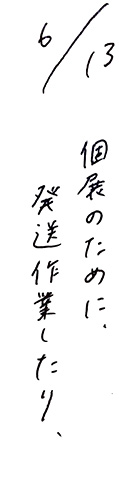 6/13
個展のために、
発送作業したり、